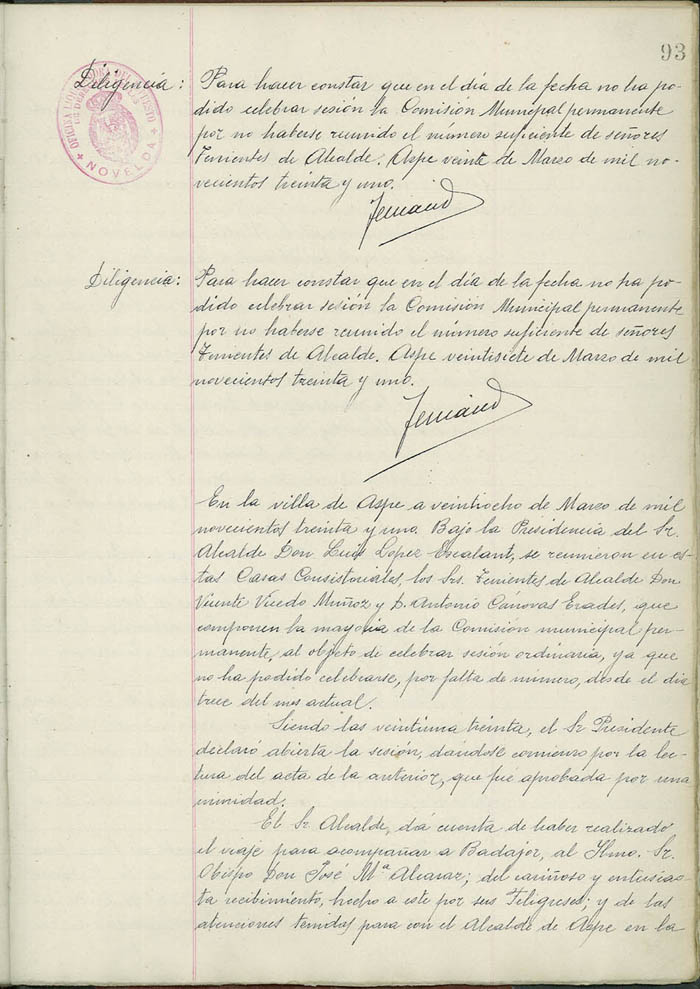 93
Diligencia: Para hacer constar que en el día de la fecha no ha po-
dido celebrar sesión la Comisión Municipal permanente
por no haberse reunido el número suficiente de señores
Tenientes de Alcalde. Aspe veinte de Marzo de mil no-
vecientos treinta y uno.
NOVELDA
Diligencia: Para hacer constar que en el día de la fecha no ha po-
dido celebrar sesión la Comisión Municipal permanente
por no haberse reunido el número suficiente de señores
Tenientes de Alcalde. Aspe veintisiete de Marzo de mil
novecientos treinta y uno.
En la villa de Aspe a veintiocho de Marzo de mil
novecientos treinta y uno. Bajo la Presidencia del Sr.
Alcalde Don Luis López, se reunieron en es-
tas Casas Consistoriales, los Srs. Tenientes de Alcalde Don
Vicente Vicedo Muñoz y D. Antonio Cánovas Erades, que
componen la mayoría de la Comisión municipal per-
manente, al objeto de celebrar sesión ordinaria, ya que
no ha podido celebrarse, por falta de número, desde el día
trece del mes actual.
Siendo las veintiuna treinta, el Sr Presidente
declaró abierta la sesión, dándose comienzo por la lec-
tura del acta de la anterior, que fué aprobada por una
nimidad.
El Sr. Alcalde, dá cuenta de haber realizado
el viaje para acompañar a Badajoz, al Ilmo. Sr.
Obispo Don José Mª Alcaraz; del cariñoso y entusias-
ta recibimiento, hecho a este por sus Feligreses; y de las
atenciones tenidas para con el Alcalde de Aspe en la